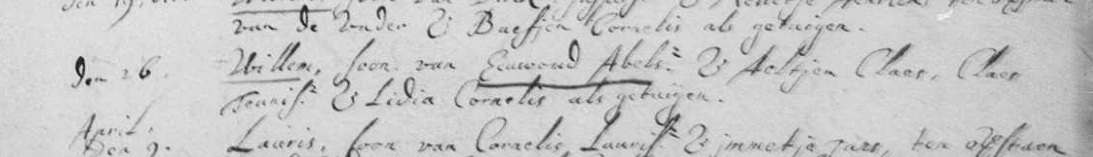 van de Vader & Baefjen Cornelis als getuijgen.
Den 26. Willem, soon van Eeuwoud Abels: & Aeltjen Claes, Claes
Teunis: & Lidia Cornelis als getuijgen.
April.
Den 9. Lauris, soon van Cornelis Lauris: & jmmetje Jans, ten